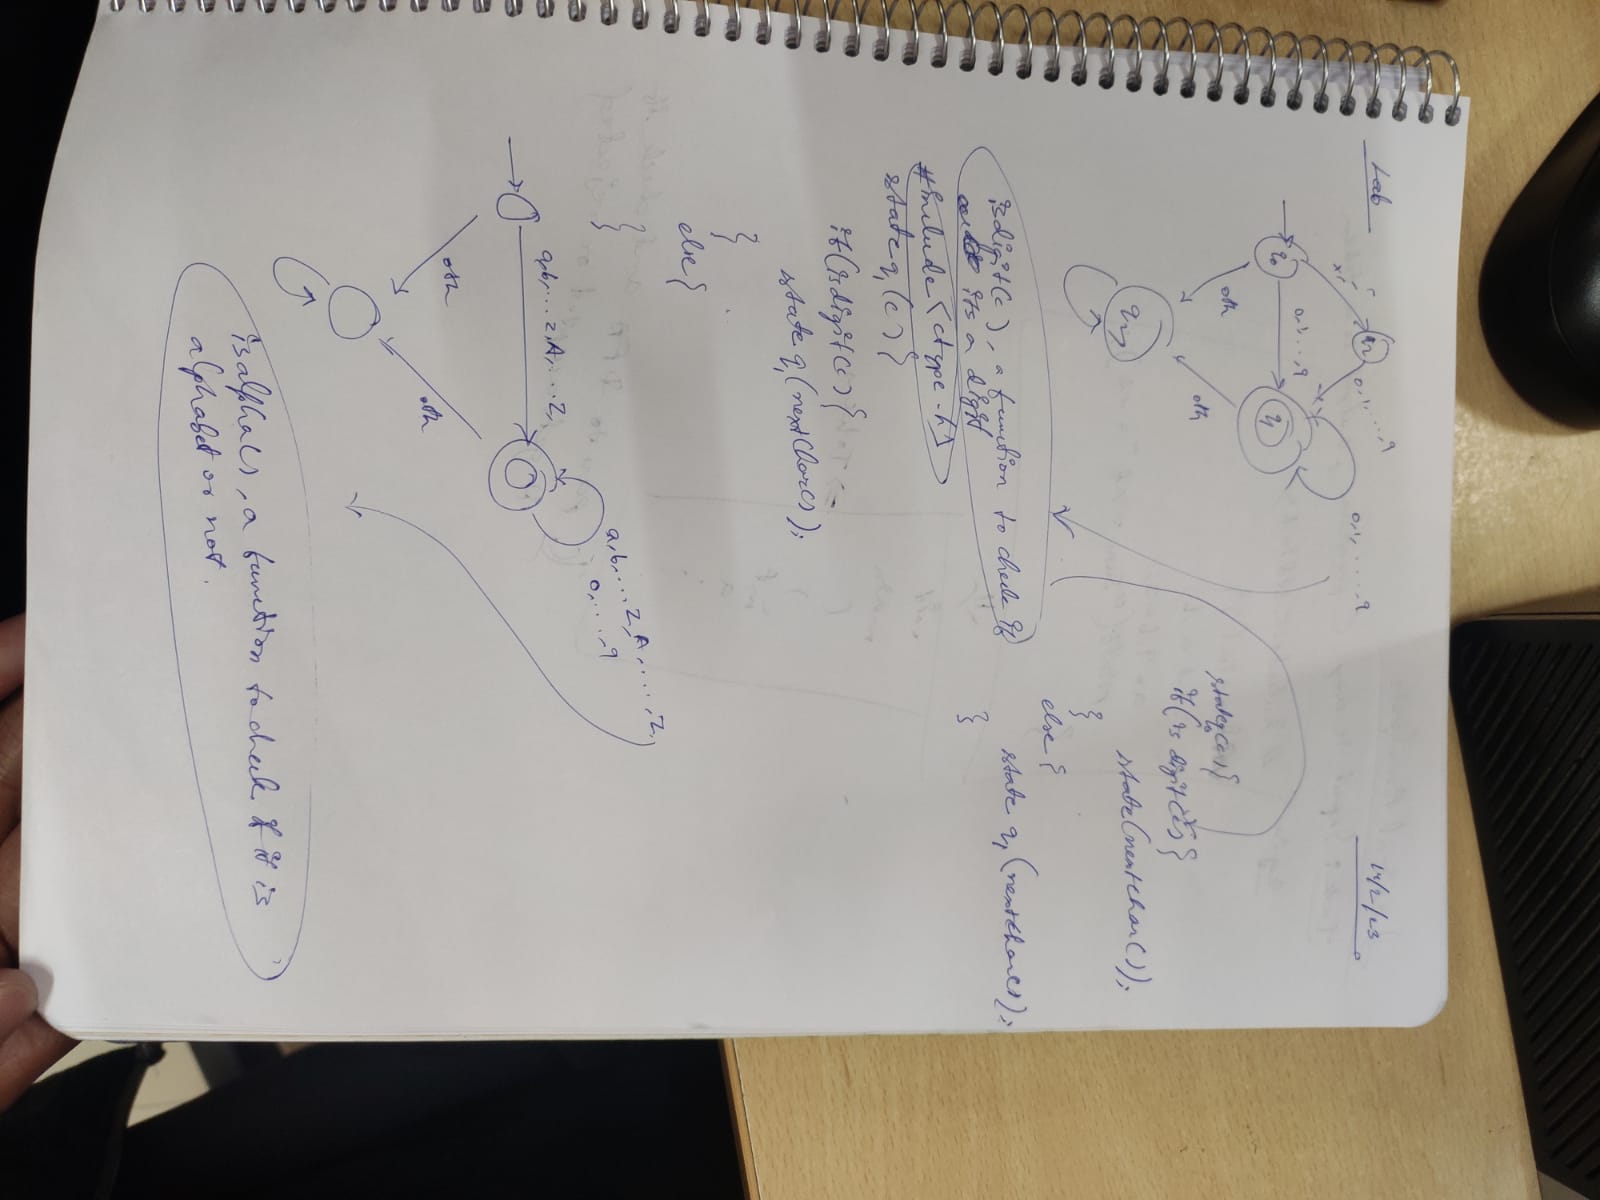 Lab
14/2/23
+, -
q2
0,1,...,9
0,1,.....,9
q0
0,1...,9
q1
oth
oth
state q0(c){
if(isdigit(c)){
state(nextchar());
}
else {
state q1(nextchar());
}
isdigit(c), a function to check if
its a digit
#include <ctype.h>
state q1(c){
if(isdigit(c){
state q1(nextchar());
}
else{
}
a,b,...Z,A,....,Z
0,...,9
a,b,...z,A,...Z,
oth
oth
isalpha(), a function to check if it is
alphabet or not.